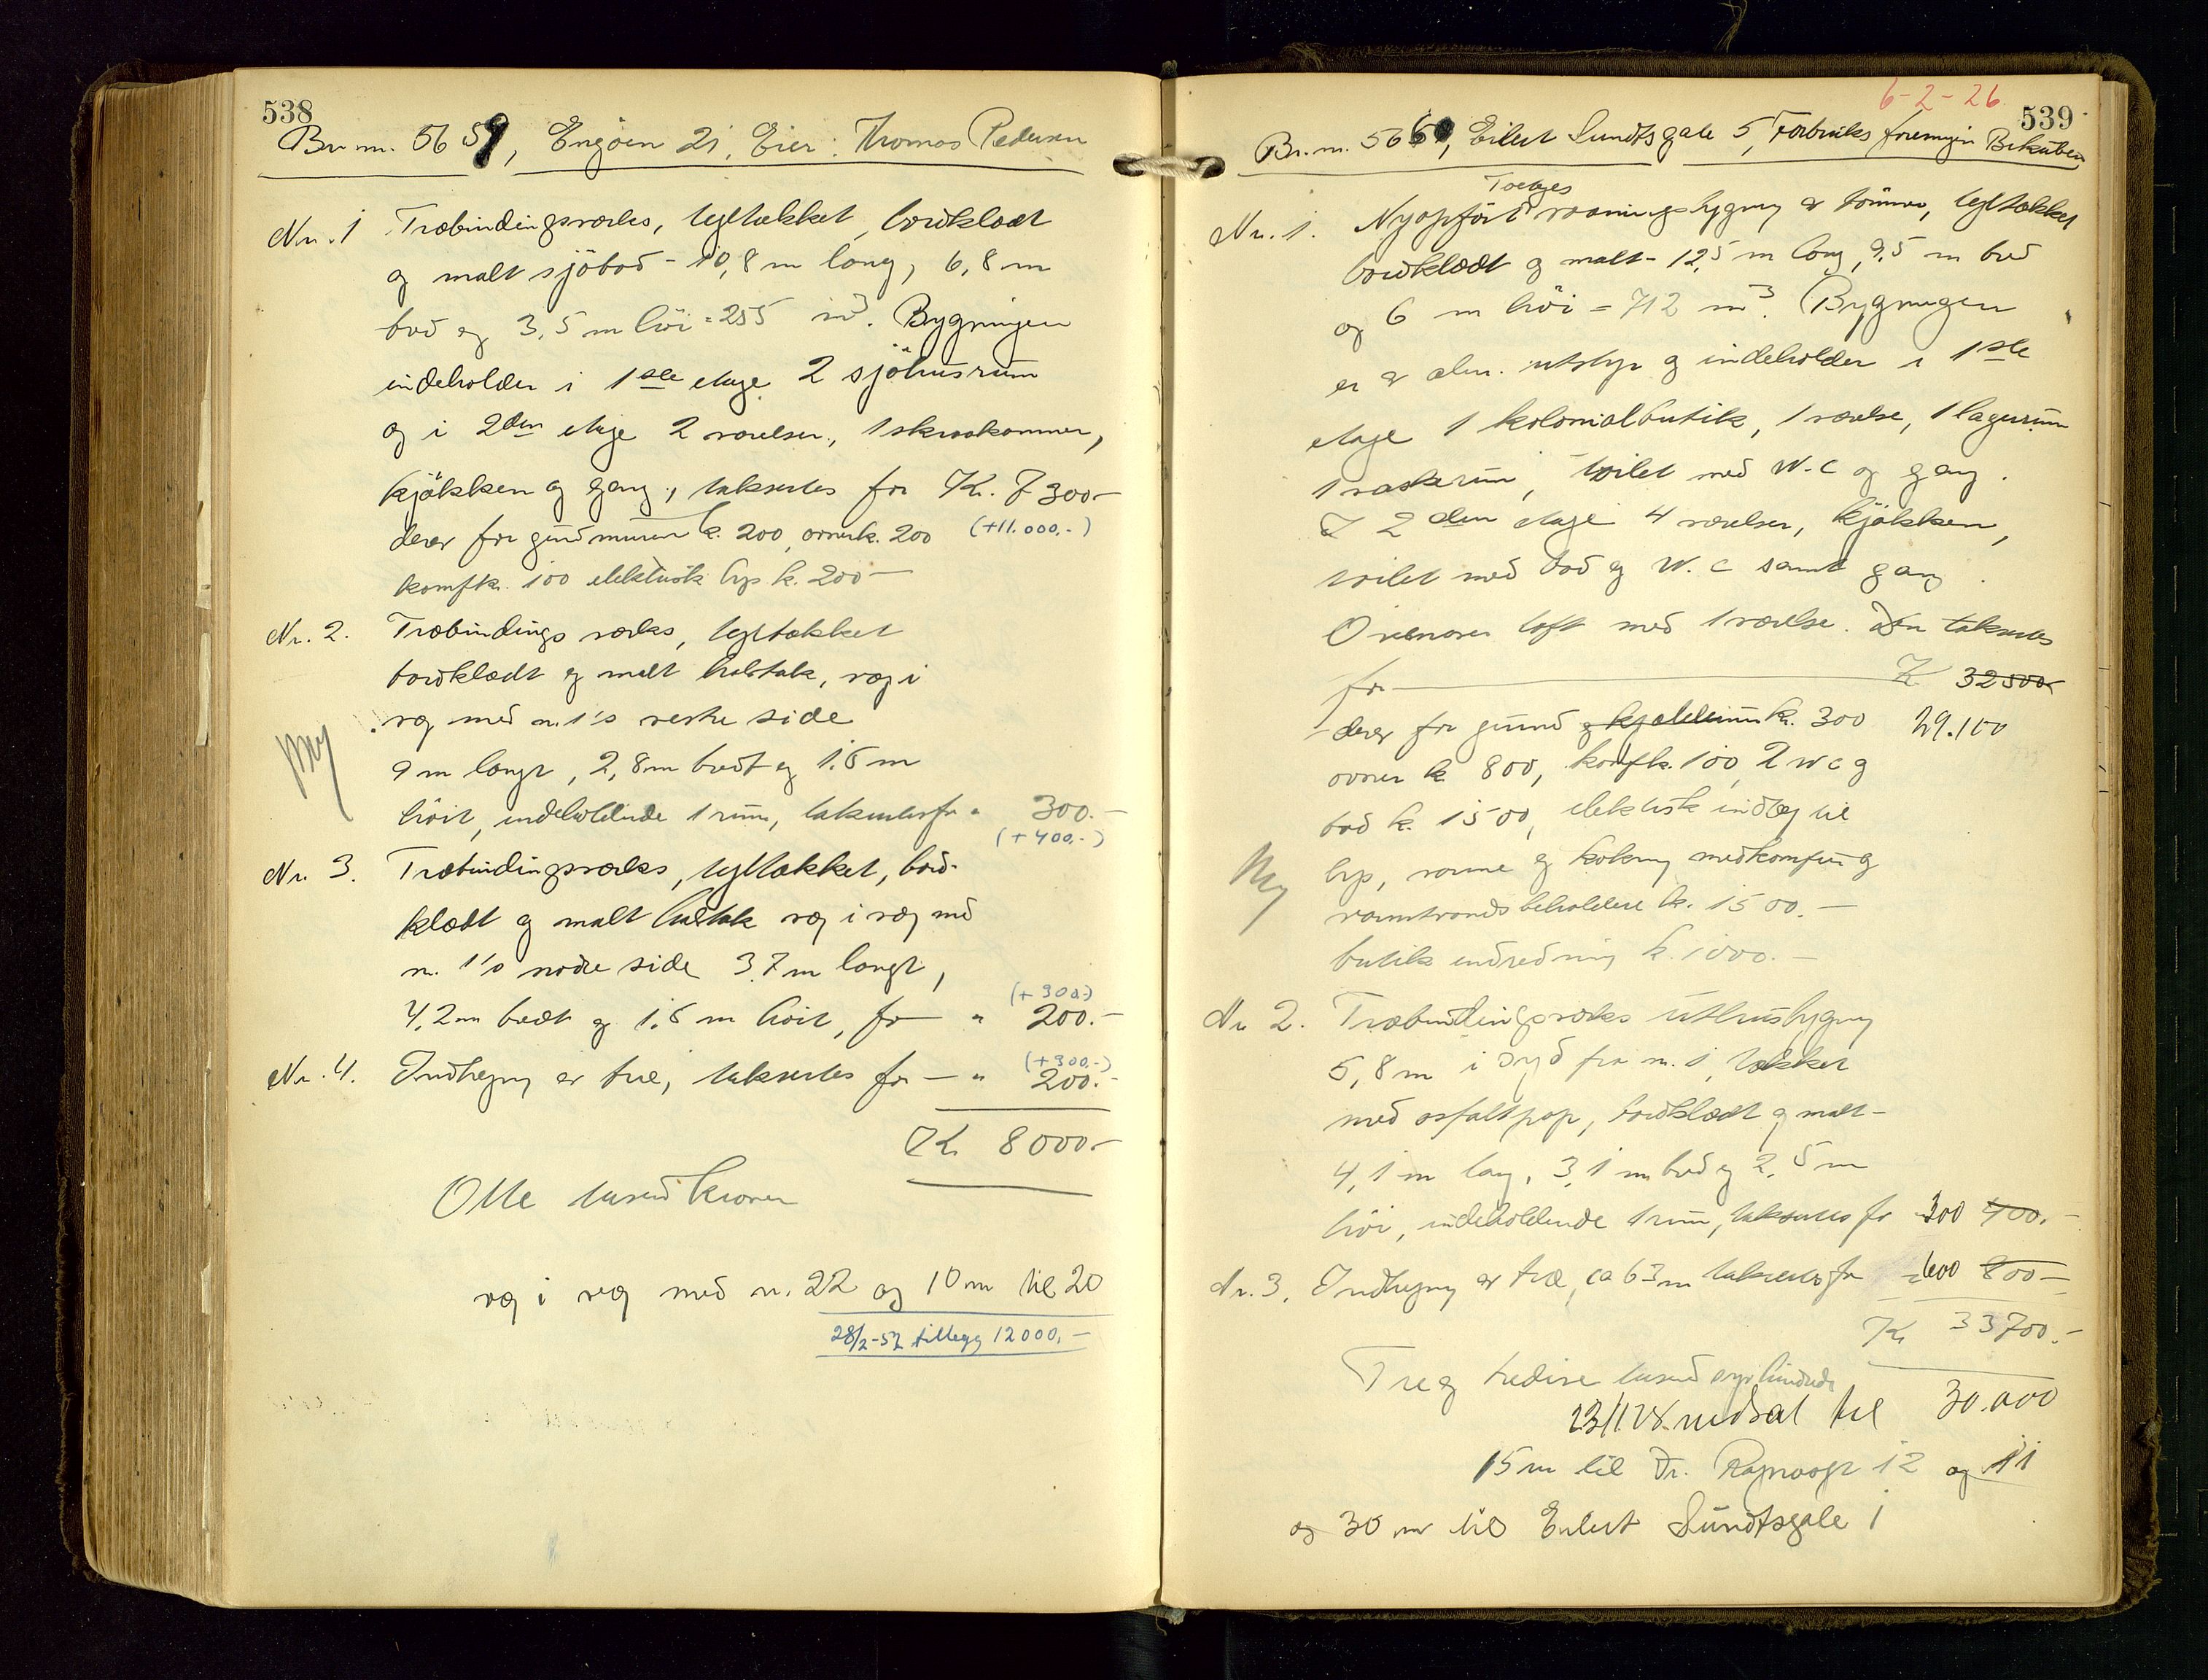 538
Br.nr. 5659, Engöen 21, Eier: Thomas Pedersen
Nr. 1 Træbindingsverks, tegltækket, bordklædt
og malt sjöbod - 10,8 m lang, 6,8 m
bred og 3,5 m höi = 255 m³. Bygningen
indeholder i 1ste etage 2 sjöhusrum
og i 2den etage 2 værelser, 1 skraakammer,
kjökken og gang, taksertes for Kr. 7300.-
derav for grundmuren k. 200, ovner k. 200 (+11.000.-)
komf k. 100 elektrisk lys k. 200 -
Nr. 2. Træbindings verks, tegltækket
bordklædt og malt halvtak, væg i
væg med nr. 1's vestre side
9 m langt, 2,8 m bredt og 1.6 m
höit, indeholdende 1 rum, taksertes for " 300.-
(+400.-)
Nr. 3. Træbindingsverks, tegltækket, bord-
klædt og malt halvtak væg i væg med
nr. 1's nordre side 3.7 m langt,
(+300.-)
4,2 m bredt og 1.6 m höit, for — " 200.-
(+300.-)
Nr. 4. Indhegning av træ, taksertes for — " 200.-
Kr. 8000.-
Otte tusend kroner
væg i væg med nr. 22 og 10 m til 20
28/2-52 tillegg 12000.-
6-2-26
539
Br.nr. 5660, Eilert Sundtsgate 5, Forbruksforeningen Bikuben
Toetages
Nr. 1. Nyopfört vaaningsbygning av tömmer, tegltækket
bordklædt og malt - 12,5 m lang, 9,5 m bred
og 6 m höi = 712 m³. Bygningen
er av alm. utstyr og indeholder i 1ste
etage 1 kolonialbutik, 1 værelse, 1 lagerrum
1 vaskerum, toilet med W.C og gang.
I 2den etage 4 værelser, kjökken,
toilet med bad og W.C samt gang.
Ovenover loft med 1 værelse. Den taksertes
for — K 32500.-
derav for grund og kjælderrum k. 300 29.100
ovner k 800, komf k. 100, 2 wc og
bad k. 1500, elektrisk indlæg til
lys, varme og kokning med komfur og
varmtvandsbeholdere k. 1500.-
butik indredning k. 1000.-
Nr 2. Træbindingsverks uthusbygning
5,8 m i syd fra nr. 1, tækket
med asfaltpap, bordklædt og malt -
4,1 m lang, 3,1 m bred og 2,5 m
höi, indeholdende 1 rum, taksertes for 300 400.-
Nr. 3. Indhegning av træ, ca 63 m taksertes for 600 800.-
Kr 33700.-
Tre og tredive tusend syv hundrede
23/1 28. nedsat til 30.000
15 m til Dr. 12 og 11
og 30 m til Eilert Sundtsgate 1